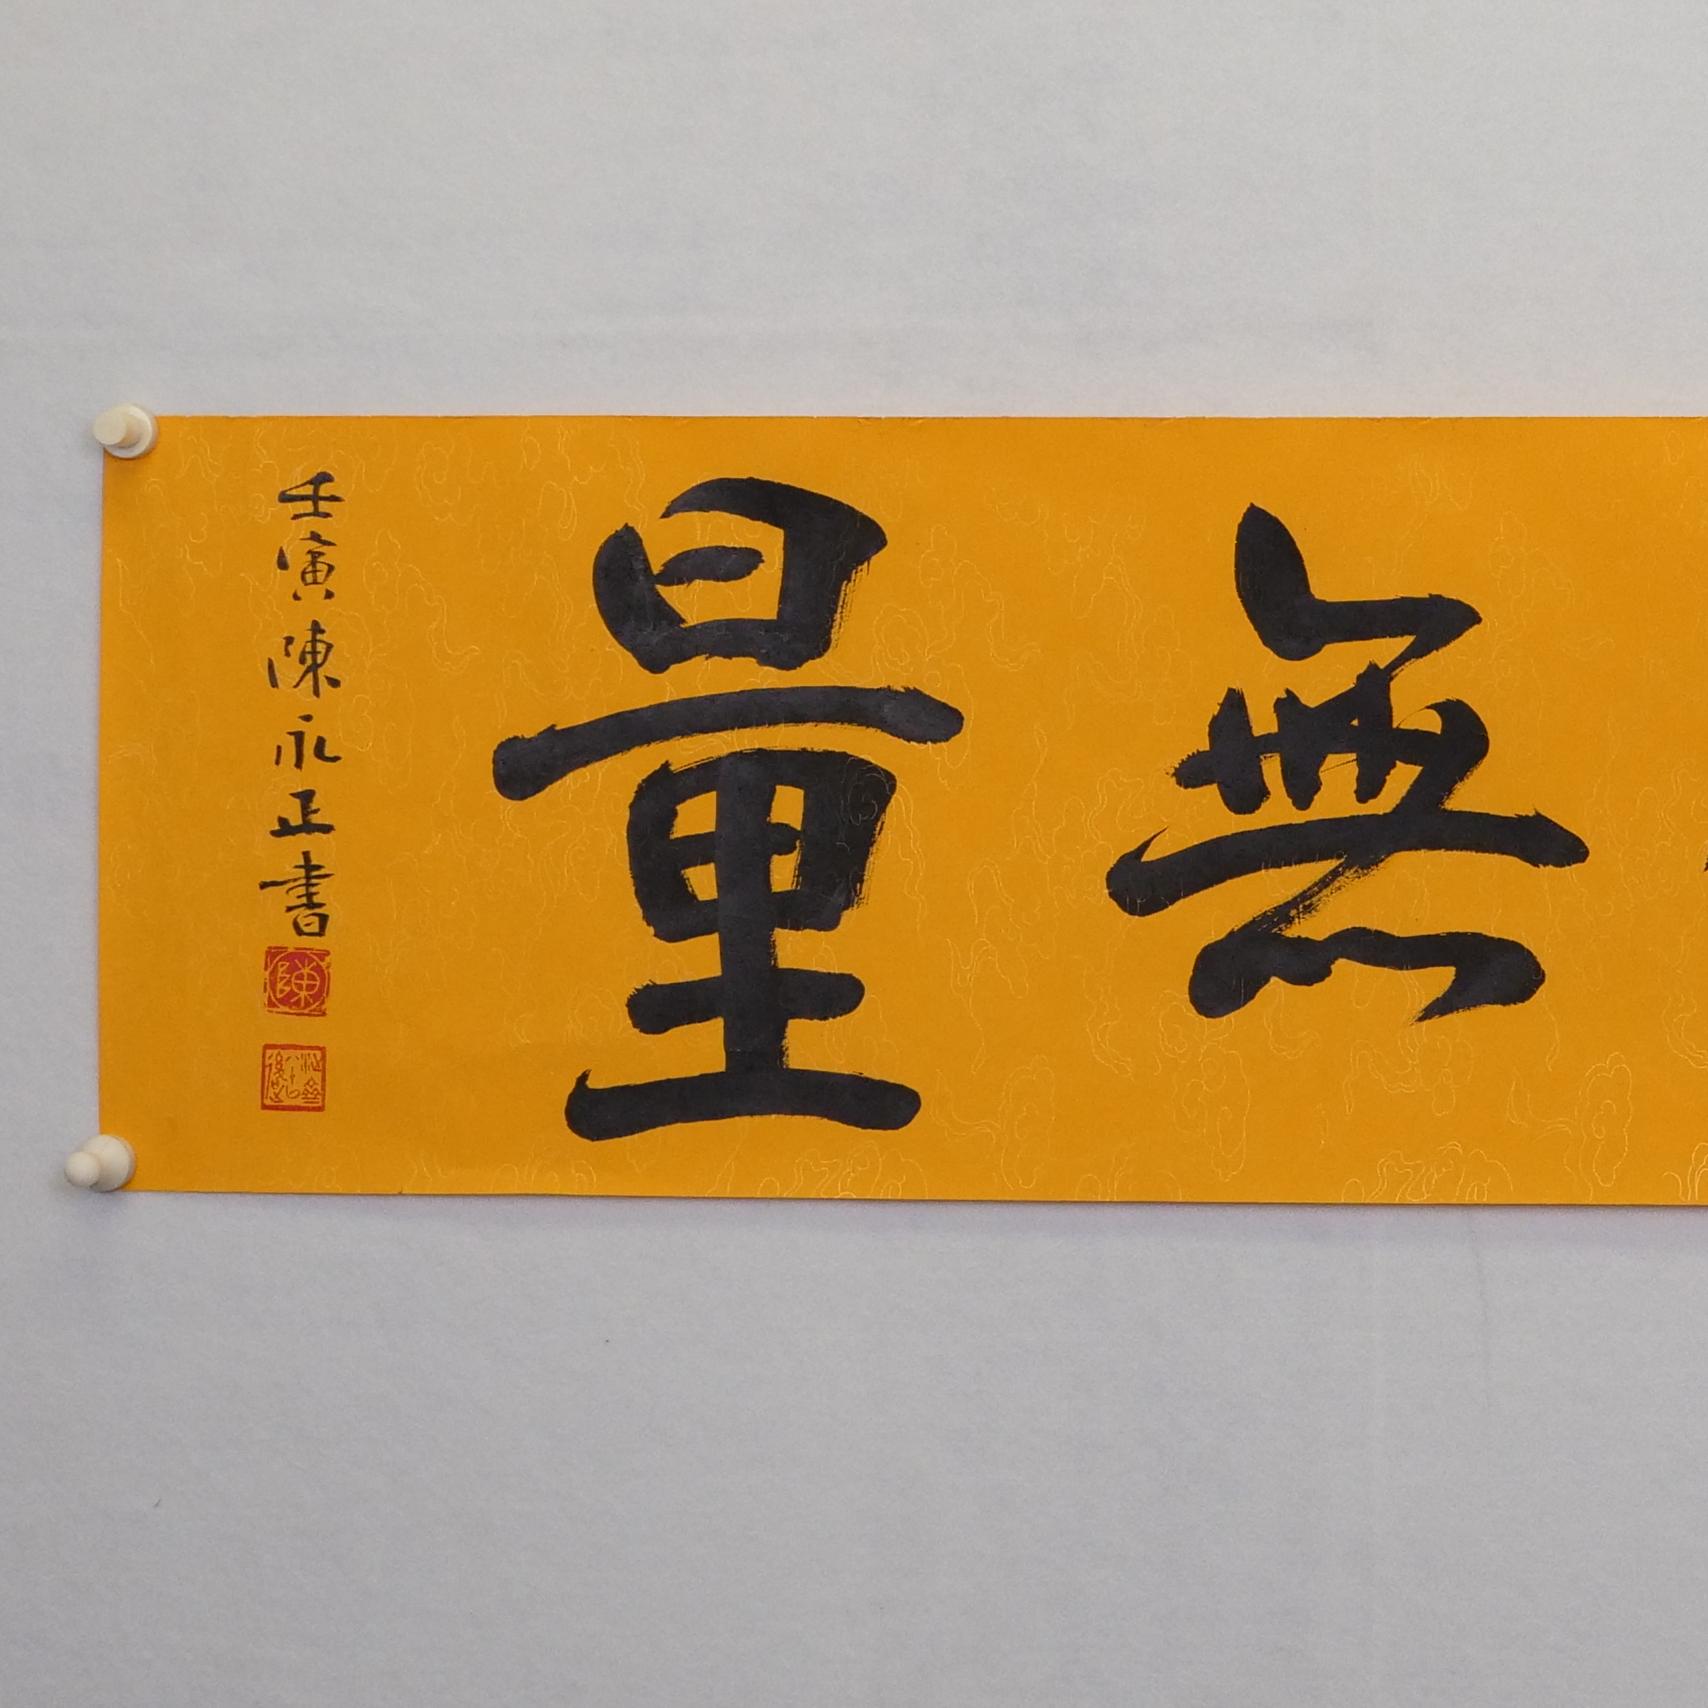 無量
壬寅陳永正書
陳